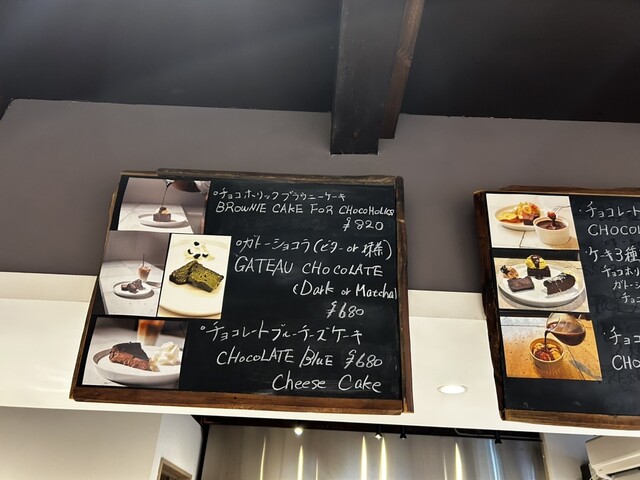 °チョコホーリックブラウニーケーキ
BROWNIE CAKE FOR CHOCOHOLICS
¥820
°ガトーショコラ(ビター or 抹茶)
GÂTEAU CHOCOLATE
(Dark or Matcha)
¥680
°チョコレートブルーチーズケーキ
CHOCOLATE BLUE ¥680
Cheese Cake
・チョコレート
CHOCOL
・ケーキ3種
チョコホ
ガトーシ
チョコ
・チョコ
CHO